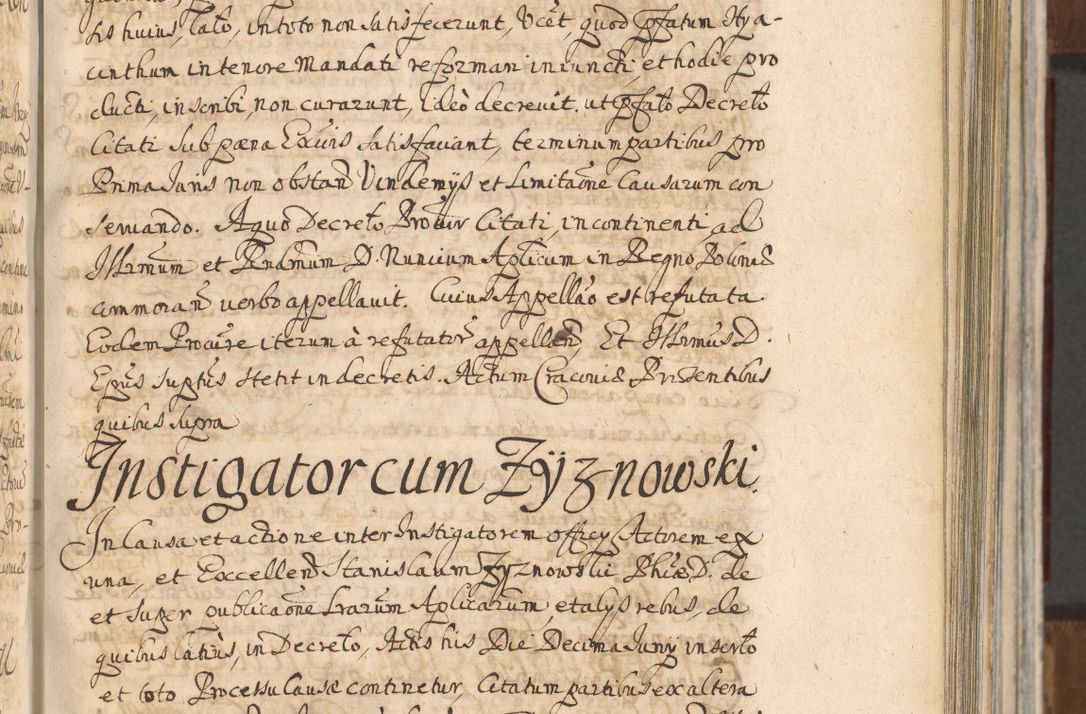 tis huius, lato, in toto non satisfecerunt, Vcet, quod pfatum Hya-
cinthum in tenore Mandati reformari iniuncti, et hodie pro
ducti, inscribi, non curarunt, Ideò decrevit. ut pfato Decreto
Citati sub pæna Excuis satisfaciant, terminum partibus pro
Prima Juris non obstan Vindemijs et Limitaõne Causarum con
servando. A quo Decreto Procur Citati, in continenti, ad
Illrmum et Rndmum D. Nuncium Aplicum in Regno Poloniæ
commoran verbo appellavit. Cuius Appellao est refutata.
Eodem Procure iterum à refutatore appellan, Et Illrmus D.
Epus suptus stetit in decretis. Actum Cracoviæ Præsentibus
quibus supra
Instigator cum Zÿznowski.
In Causa et actione inter Instigatorem officy Actorem ex
una, et Excellen Stanislaum Zyznowski Phiæ D. de
et super publicaõne Lrarum Aplicarum, et alys rebus, de
quibus latius, in Decreto, Actis his Die Decima Juny inserto
et toto Processu Causæ continetur, Citatum partibus ex altera